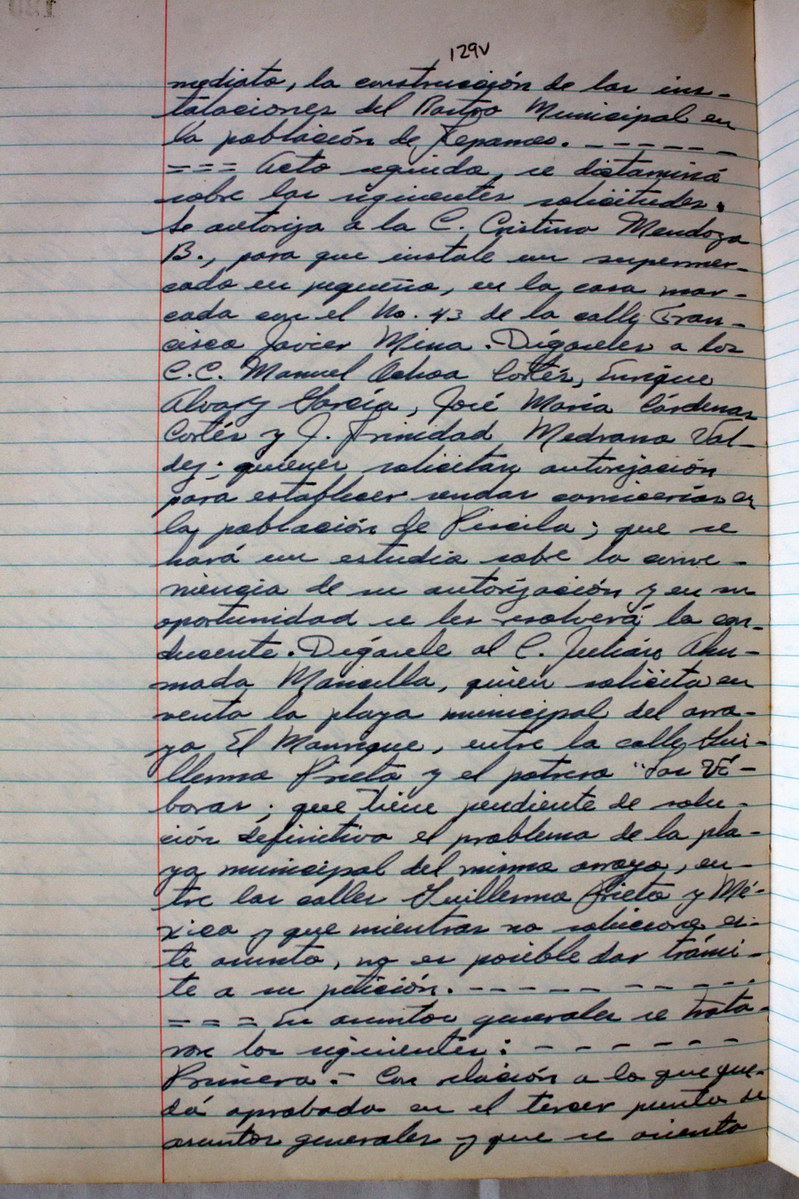 129v
mediato, la construcción de las ins-
talaciones del Rastro Municipal en
la población de Tepames. - - - - - -
= = = Acto seguido, se dictaminó
sobre las siguientes solicitudes.
Se autoriza a la C. Cristina Mendoza
B., para que instale un supermer-
cado en pequeño, en la casa mar-
cada con el No. 43 de la calle Fran-
cisco Javier Mina. Dígaseles a los
C.C. Manuel Ochoa Cortés, Enrique
Alvarez García, José María Cárdenas
Cortés y J. Trinidad Medrano Val-
dez; quienes solicitan autorización
para establecer sendas carnicerías en
la población de Piscila; que se
hará un estudio sobre la conve-
niencia de su autorización y en su
oportunidad se les resolverá lo con-
ducente. Dígasele al C. Julián Ahu-
mada Mancilla, quien solicita en
venta la playa municipal del arro-
yo El Manrique, entre la calle Gui-
llermo Prieto y el potrero "Las Ví-
boras; que tiene pendiente de solu-
ción definitiva el problema de la pla-
ya municipal del mismo arroyo, en-
tre las calles Guillermo Prieto y Mé-
xico y que mientras no solucione es-
te asunto, no es posible dar trámi-
te a su petición. - - - - - - - - - -
= = = En asuntos generales se trata-
ron los siguientes: - - - - - - -
Primero.- Con relación a lo que que-
dó aprobado en el tercer punto de
asuntos generales y que se asentó